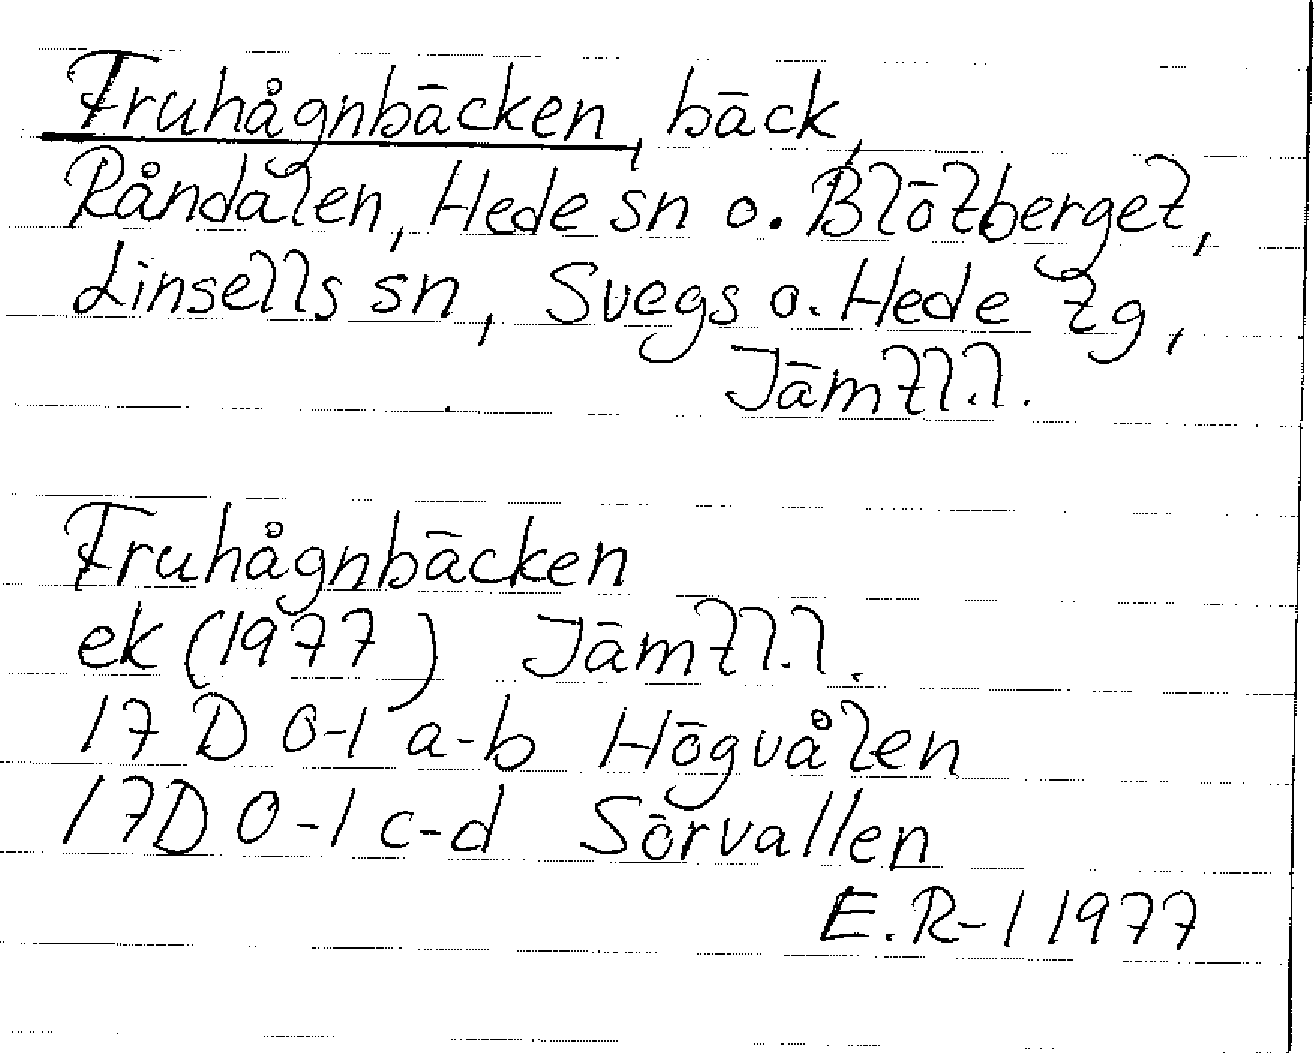 Fruhågnbäcken, bäck,
Råndalen, Hede sn o. Blötberget,
Linsells sn, Svegs o. Hede tg,
Jämtl.l.
Fruhågnbäcken
ek (1977) Jämtl.l.
17 D 0-1 a-b Högvålen
17D 0-1 c-d Sörvallen
E.R-l 1977